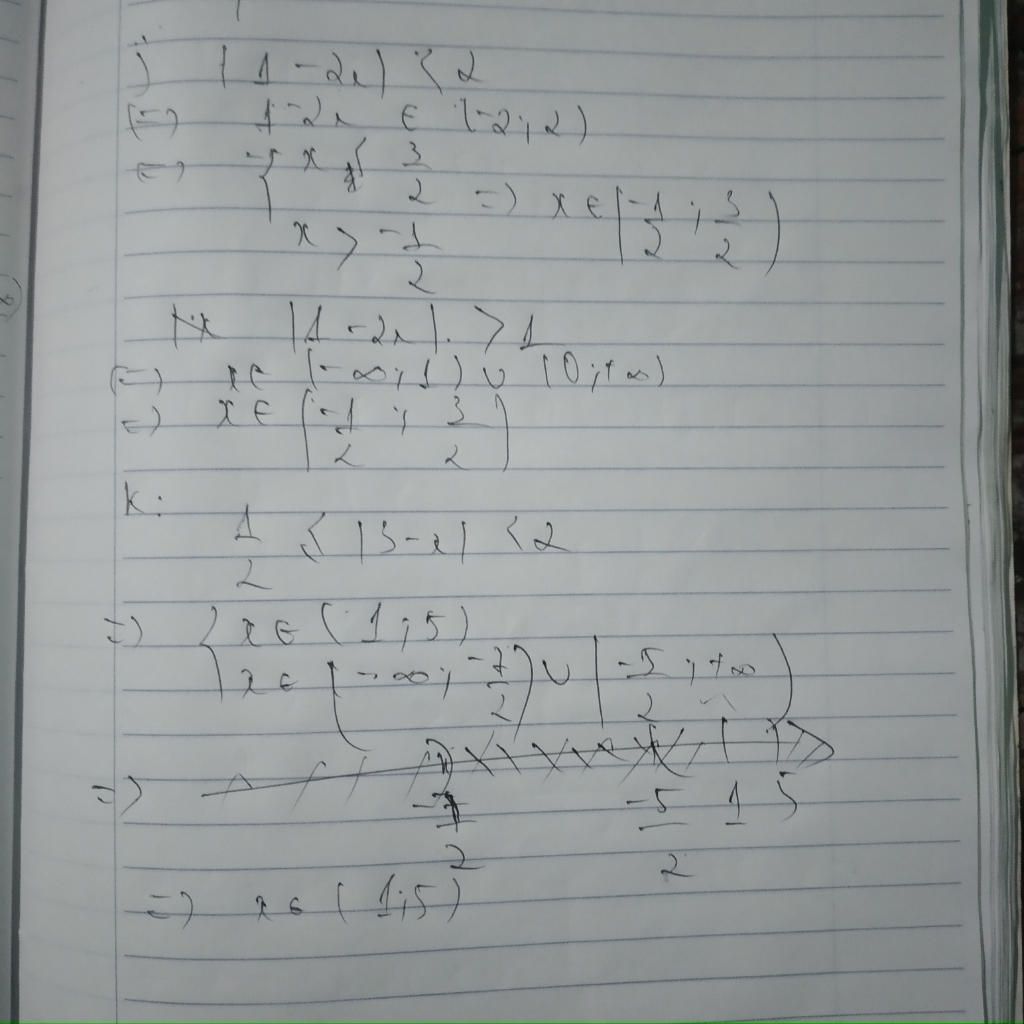 j |1 - 2x| < 2
<=> 1-2x ∈ (-2; 2)
<=> { x < 3/2 => x ∈ (-1/2 ; 3/2)
x > -1/2
|1 - 2x| > 1
<=> x ∈ (-∞; 1) ∪ (0; +∞)
=> x ∈ (-1/2 ; 3/2)
k:
1/2 < |3-x| < 2
=> { x ∈ (1; 5)
x ∈ (-∞; -7/2) ∪ (-5/2 ; +∞)
=> -7/2 -5/2 1 5
=> x ∈ (1; 5)